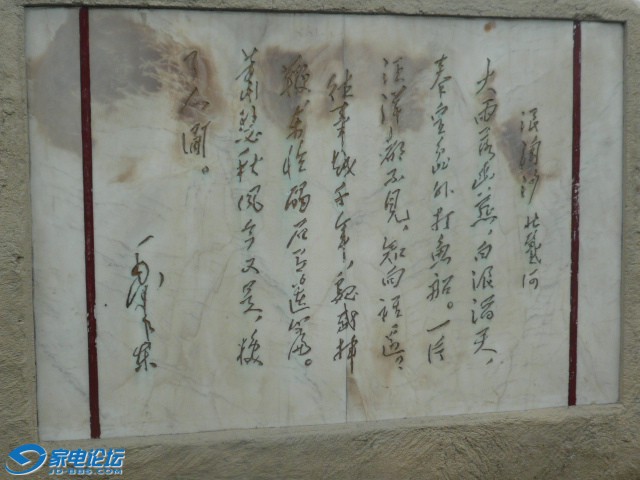 浪淘沙 北戴河
大雨落幽燕，白浪滔天，
秦皇岛外打鱼船。一片
汪洋都不见，知向谁边？
往事越千年，魏武挥
鞭，东临碣石有遗篇。
萧瑟秋风今又是，换
了人间。
毛泽东
家电论坛
JD-BBS.COM